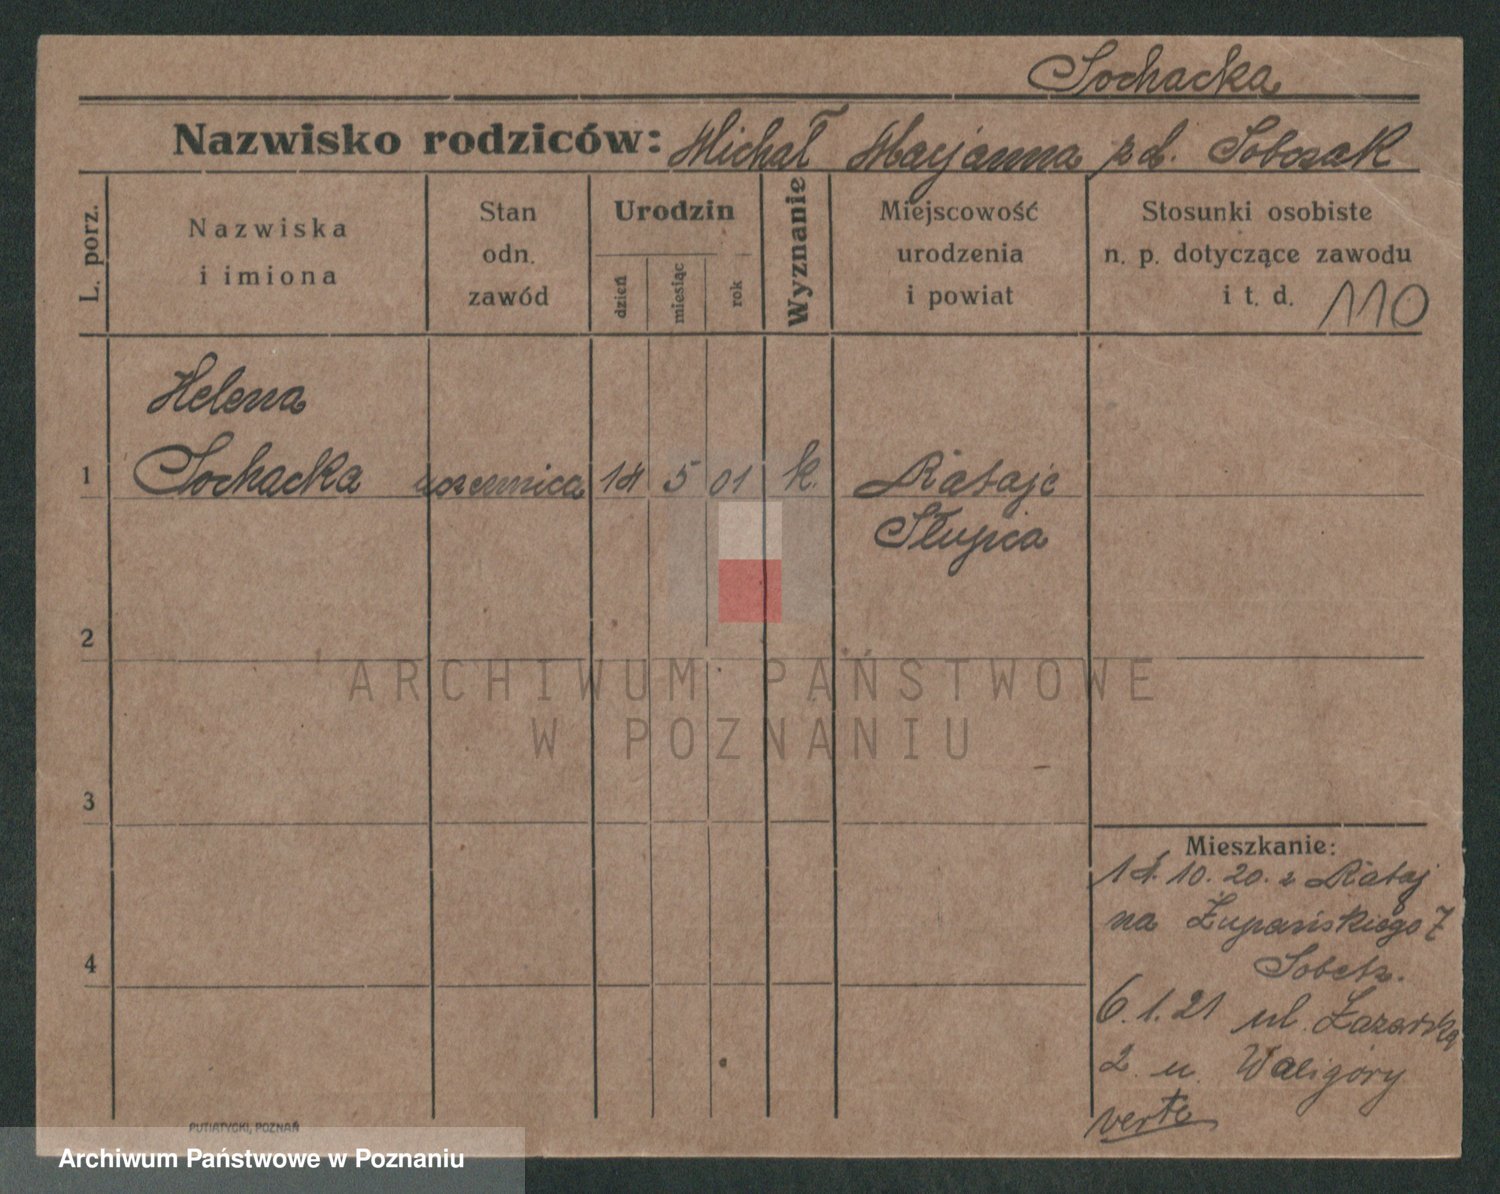 Sochacka
Nazwisko rodziców: Michał Marjanna z d. Sobczak
L. porz.
Nazwiska
i imiona
Stan
odn.
zawód
Urodzin
dzień
miesiąc
rok
Wyznanie
Miejscowość
urodzenia
i powiat
Stosunki osobiste
n. p. dotyczące zawodu
i t. d. 110
Helena
1 Sochacka uczennica 14 5 01 k. Rataje
Słupca
2
3
4
Mieszkanie:
14. 10. 20. z Rataj
na Żupańskiego 7
6. 1. 21 ul. Łazarska
2. u. Waligóry
verte
PUTIATYCKI, POZNAŃ
ARCHIWUM PAŃSTWOWE
W POZNANIU
Archiwum Państwowe w Poznaniu